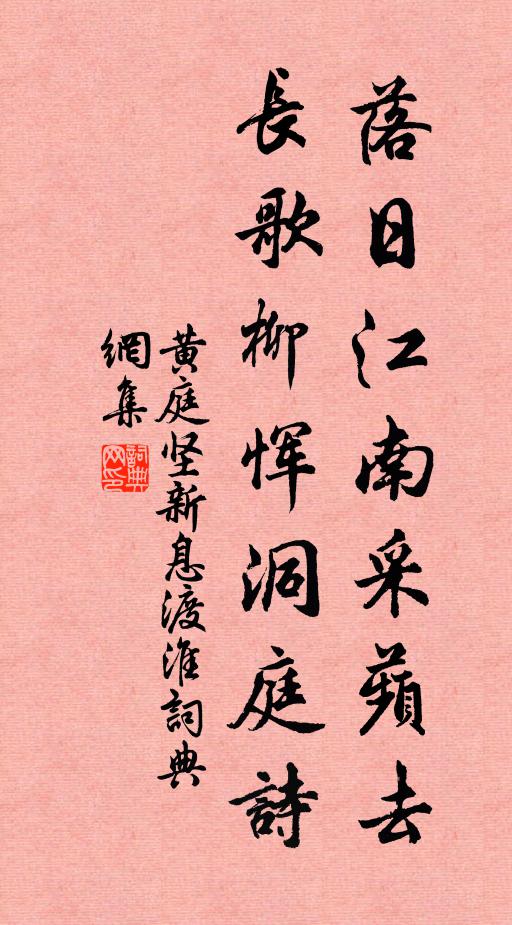 落日江南采蘋去
長歌柳惲洞庭詩
黄庭坚新息渡淮詞典
網集
詞典網印